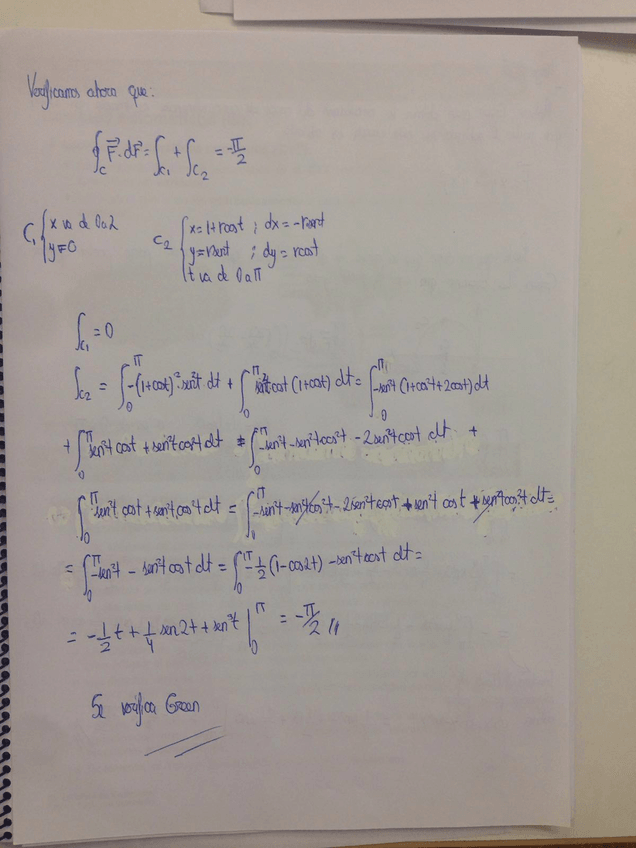 Verificamos ahora que:
∮_C F⃗·dr⃗ = ∫_C₁ + ∫_C₂ = -π/2
C₁ { x va de 0 a 2
y=0
C₂ { x = 1+rcost ; dx = -rsent
y = rsent ; dy = rcost
t va de 0 a π
∫_C₁ = 0
∫_C₂ = ∫₀^π -(1+cost)²·sen²t dt + ∫₀^π sen²t cost (1+cost) dt = ∫₀^π -sen²t (1+cos²t+2cost) dt
+ ∫₀^π sen²t cost + sen²t cos²t dt = ∫₀^π -sen²t - sen²t cos²t - 2sen²t cost dt +
∫₀^π sen²t cost + sen²t cos²t dt = ∫₀^π -sen²t - sen²t cos²t - 2sen²t cost + sen²t cost + sen²t cos²t dt =
= ∫₀^π -sen²t - sen²t cost dt = ∫₀^π -1/2 (1-cos2t) - sen²t cost dt =
= -1/2 t + 1/4 sen2t + sen³t |₀^π = -π/2 //
Se verifica Green